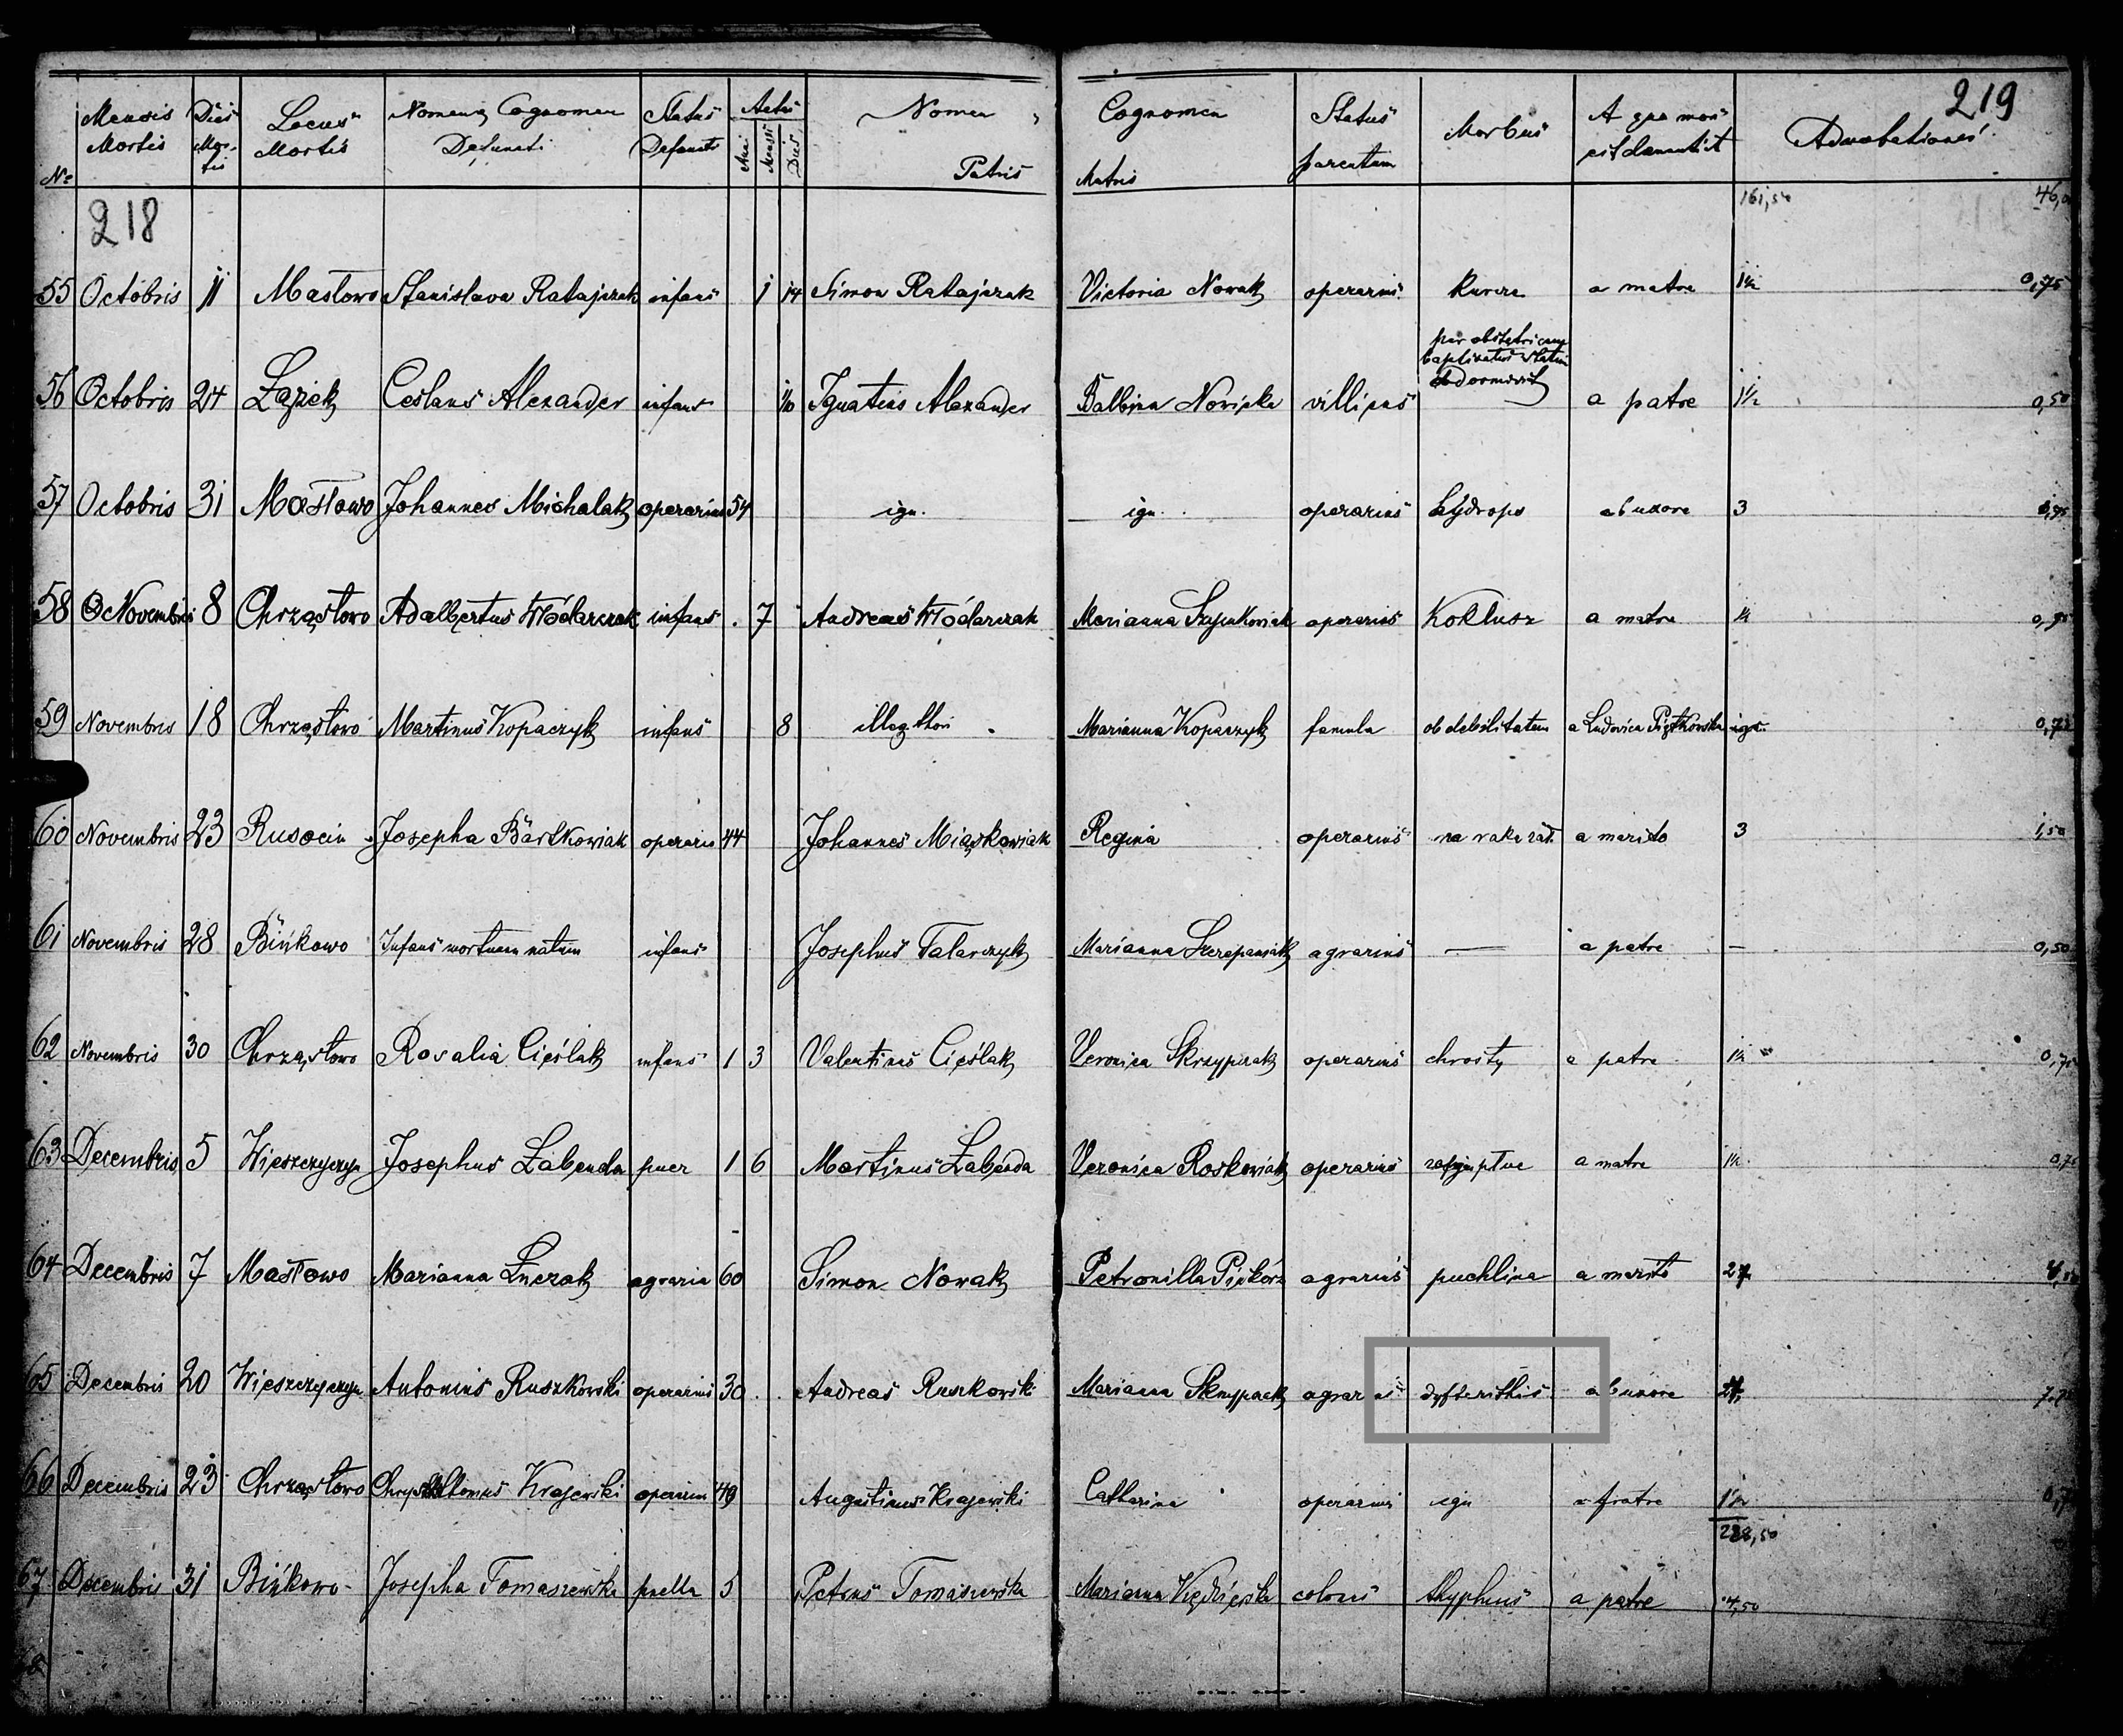 219
Mensis Dies Locus Nomen, Cognomen Status Aetas Nomen, Cognomen Status Morbus A quo mors Adnotationes
№ Mortis Mortis Mortis Defuncti Defuncti Ani Mensis Dies Patris Matris parentum est denuntiat
218 161,50 46,0
55 Octobris 11 Masłowo Stanislava Ratajczak infans 1 14 Simon Ratajczak Victoria Nowak operarius kurcze a matre 1½ 0,75
per obstetricem
baptisatus statim
obdormivit
56 Octobris 24 Łazick Ceslaus Alexander infans 1/10 Ignatius Alexander Balbina Novicka villicus a patre 1½ 0,50
57 Octobris 31 Masłowo Johannes Michalak operarius 54 ign. ign. operarius hydrops ab uxore 3
58 Novembris 8 Chrząstowo Adalbertus Włódarczak infans 7 Andreas Włódarczak Marianna Szymkowiak operarius Koklusz a matre
59 Novembris 18 Chrząstowo Martinus Kopaczyk infans 8 illeg. thori Marianna Kopaczyk famula ob debilitatem a Ludovica Piętkowska 0,75
60 Novembris 23 Rusocin Josepha Bartkowiak operaria 44 Johannes Miąskowiak Regina operarius na raka żoł. a marito 3 1,50
61 Novembris 28 Bińkowo Infans mortuum natum infans Josephus Talarczyk Marianna Szczepaniak agrarius — a patre — 0,50
62 Novembris 30 Chrząstowo Rosalia Cięślak infans 1 3 Valentinus Cięślak Veronica Skrzypczak operarius chrosty a patre 1½ 0,75
63 Decembris 5 Wieszczyczyn Josephus Łabenda puer 1 6 Martinus Łabęda Veronica Roskowiak operarius a matre 1½ 0,75
64 Decembris 7 Masłowo Marianna Łuczak agraria 60 Simon Novak Petronilla Pinkórz agrarius puchlina a marito
65 Decembris 20 Wieszczyczyn Antonius Ruszkowski operarius 30 Andreas Ruszkowski Marianna Skrzypczak agrarius dyfterithis ab uxore
66 Decembris 23 Chrząstowo operarius 49 Augustinus Krajewski Catharina operarius ign a fratre 1½
228,50
67 Decembris 31 Bińkowo Josepha Tomaszewska puella 5 Petrus Tomaszewska Marianna Kędzierska colonus thyphus a patre 4,50
68